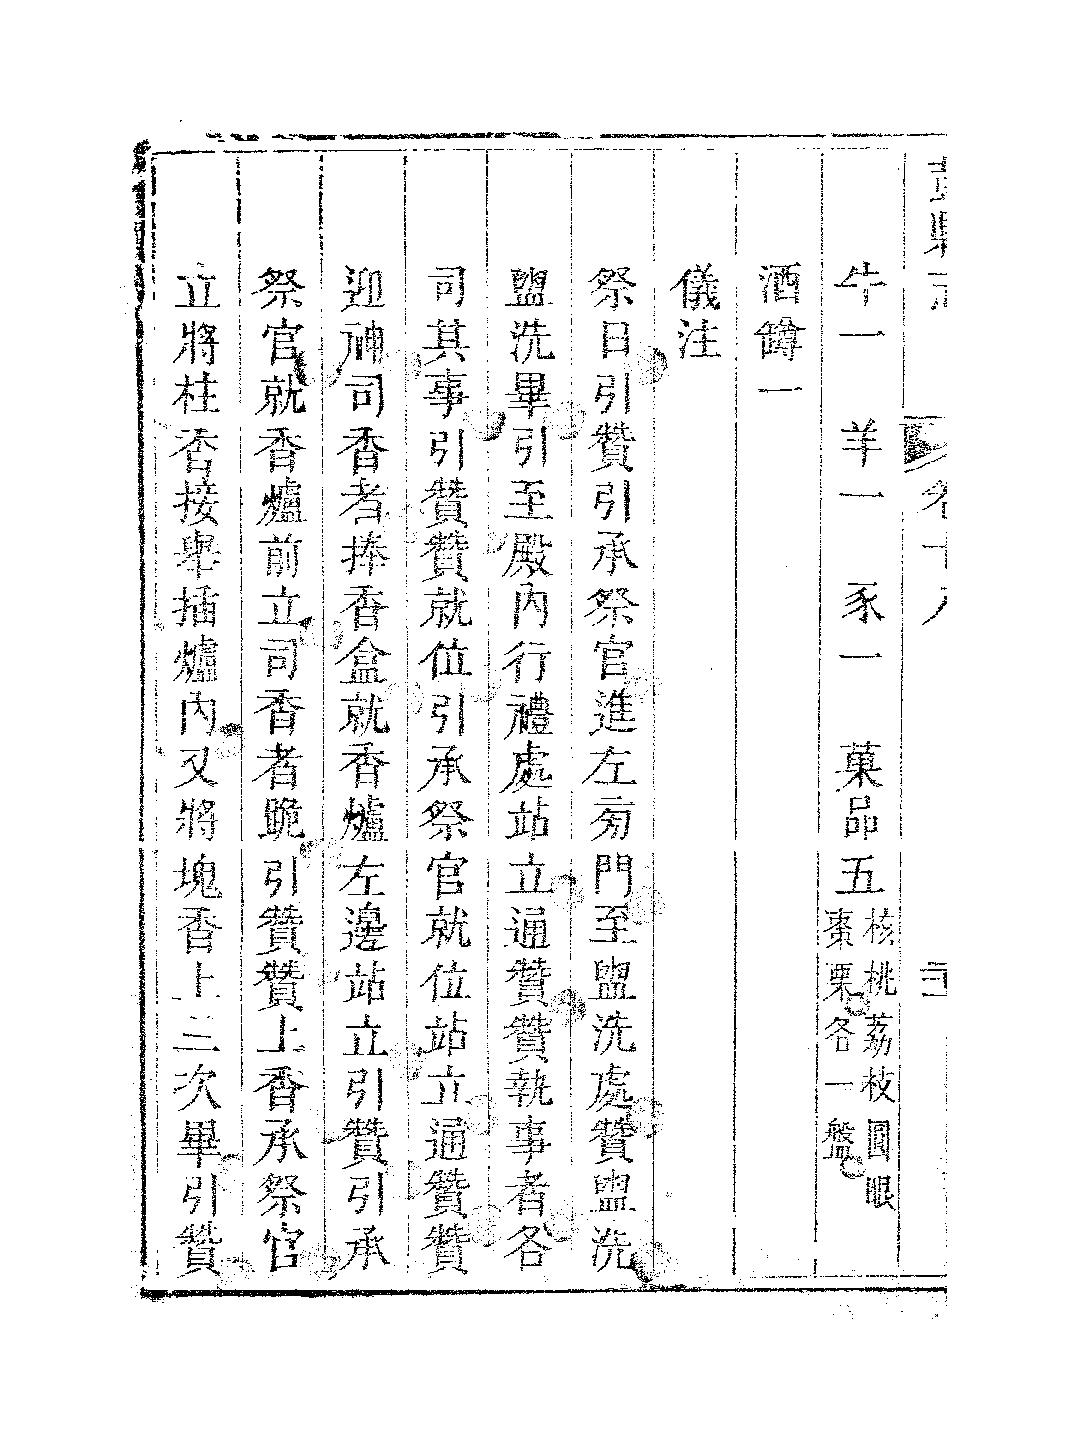 牛一　羊一　豕一　菓品五核桃荔枝圓眼棗栗各一盤
酒罇一
儀注
祭日引贊引承祭官進左旁門至盥洗處贊盥洗
盥洗畢引至殿內行禮處站立通贊贊執事者各
司其事引贊贊就位引承祭官就位站立通贊贊
迎神司香者捧香盒就香爐左邊站立引贊引承
祭官就香爐前立司香者跪引贊贊上香承祭官
立將柱香接舉插爐內又將塊香上三次畢引贊